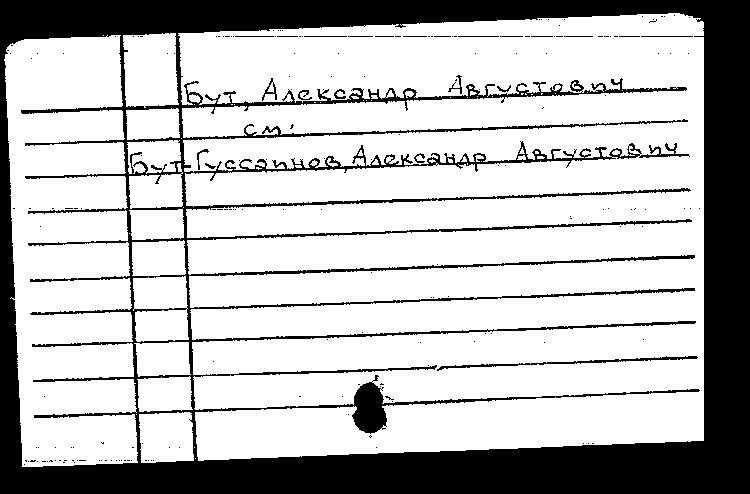 Бут, Александр Августович
см.
Бут-Гуссаинов, Александр Августович